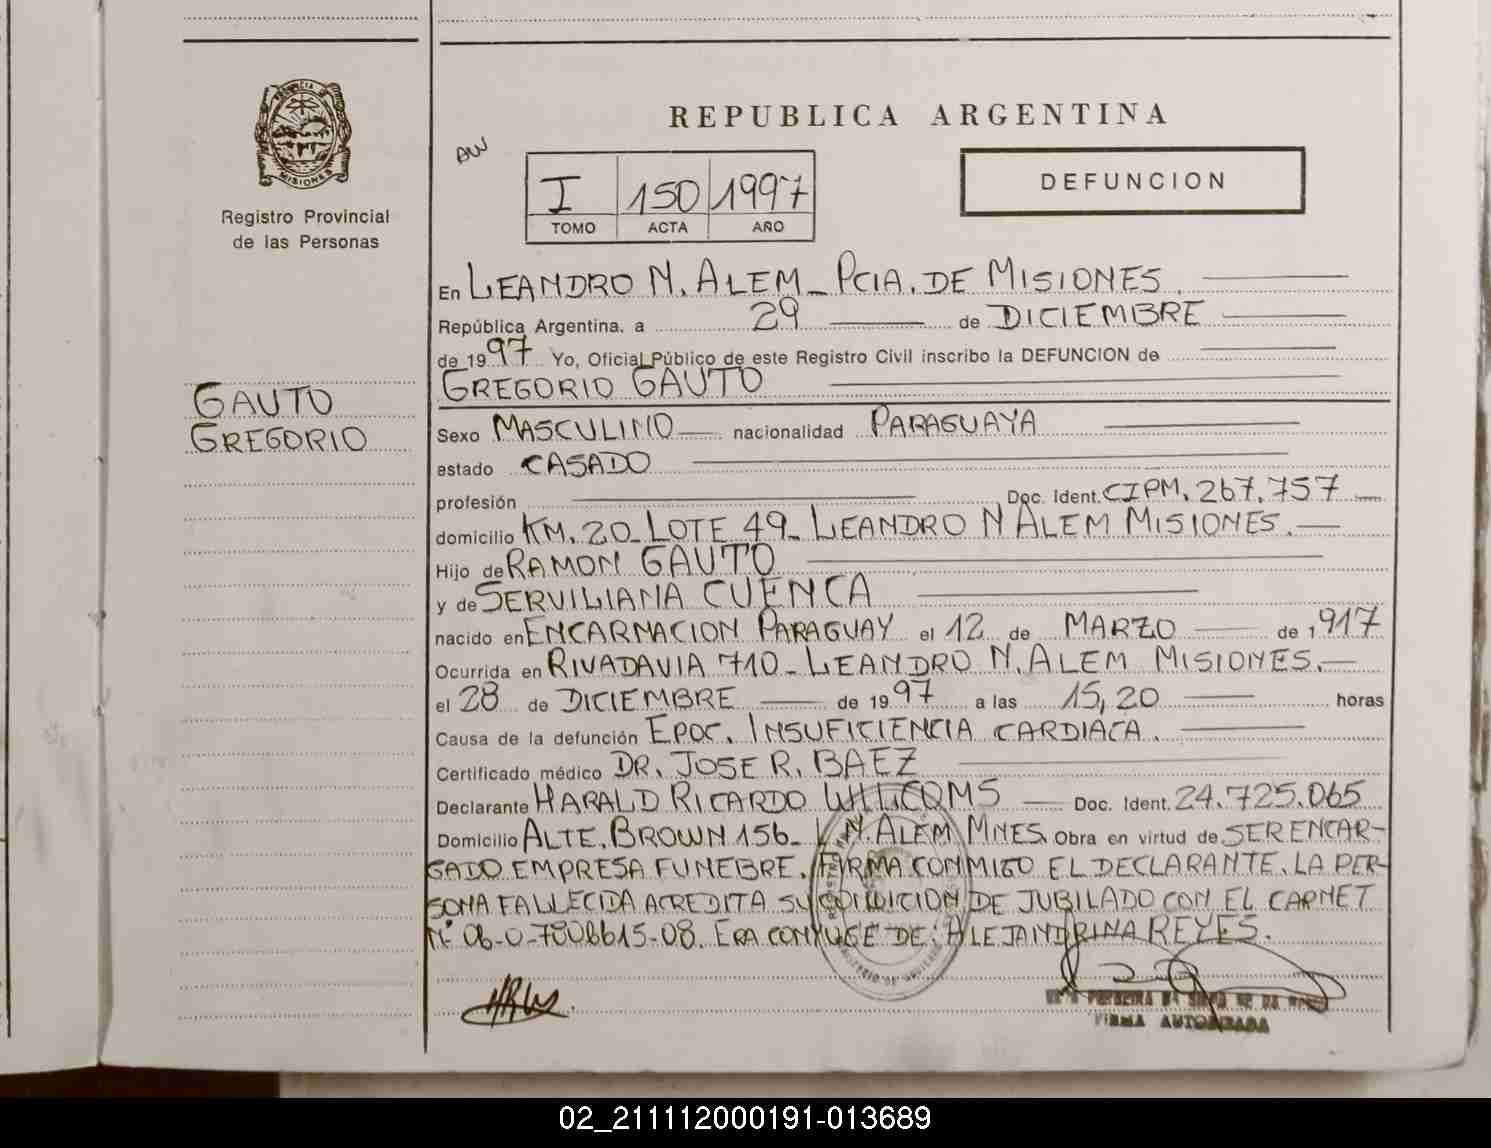 REPUBLICA ARGENTINA
PROVINCIA DE
MISIONES
Registro Provincial
de las Personas
AW
I 150 1997
TOMO ACTA AÑO
DEFUNCION
En LEANDRO N. ALEM_ PCIA. DE MISIONES
República Argentina, a 29 de DICIEMBRE
de 1997 Yo, Oficial Público de este Registro Civil inscribo la DEFUNCION de
GREGORIO GAUTO
GAUTO
GREGORIO
Sexo MASCULINO nacionalidad PARAGUAYA
estado CASADO
profesión Doc. Ident. CIPM. 267.757
domicilio KM. 20_ LOTE 49_ LEANDRO N ALEM MISIONES.
Hijo de RAMON GAUTO
y de SERVILIANA CUENCA
nacido en ENCARNACION PARAGUAY el 12 de MARZO de 1917
Ocurrida en RIVADAVIA 710_ LEANDRO N. ALEM MISIONES.
el 28 de DICIEMBRE de 1997 a las 15,20 horas
Causa de la defunción EPOC. INSUFICIENCIA CARDIACA.
Certificado médico DR. JOSE R. BAEZ
Declarante HARALD RICARDO Doc. Ident. 24.725.065
Domicilio ALTE. BROWN 156_ L N. ALEM MNES. Obra en virtud de SER ENCAR-
GADO EMPRESA FUNEBRE. FIRMA CONMIGO EL DECLARANTE. LA PER-
SONA FALLECIDA ACREDITA SU CONDICION DE JUBILADO CON EL CARNET
Nº 06-0-7806615-08. ERA CONYUGE DE: ALEJANDRINA REYES.
FIRMA AUTORIZADA
02_211112000191-013689